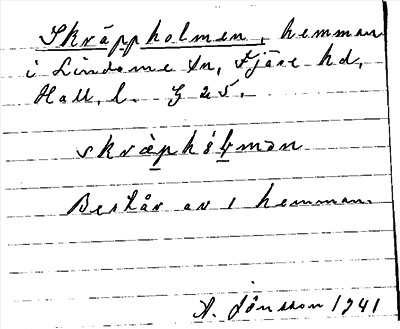 Skräppholmen, hemman
i Lindome sn, Fjäre hd,
Hall. l. G 25.
skräphólman
Består av 1 hemman.
A. Jönsson 1941